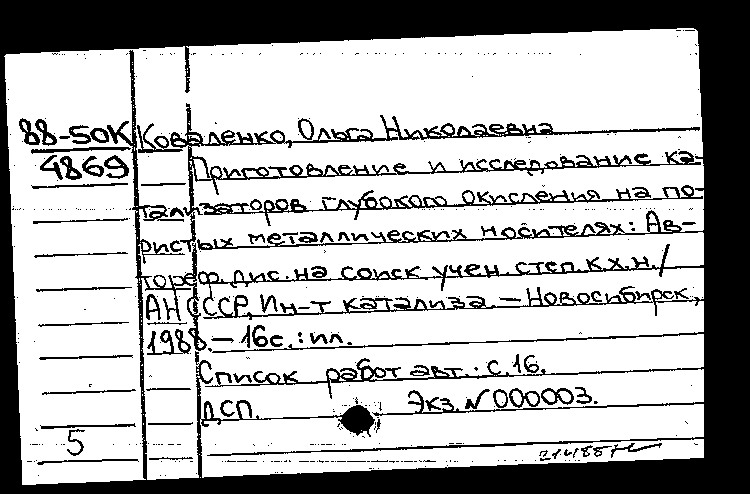 88-50К Коваленко, Ольга Николаевна
4869 Приготовление и исследование ка-
тализаторов глубокого окисления на по-
ристых металлических носителях: Ав-
тореф. дис. на соиск учен. степ. к.х.н./
АН СССР, Ин-т катализа. – Новосибирск,
1988. – 16с.: ил.
Список работ авт.: с. 16.
ДСП. Экз. № 000003.
5